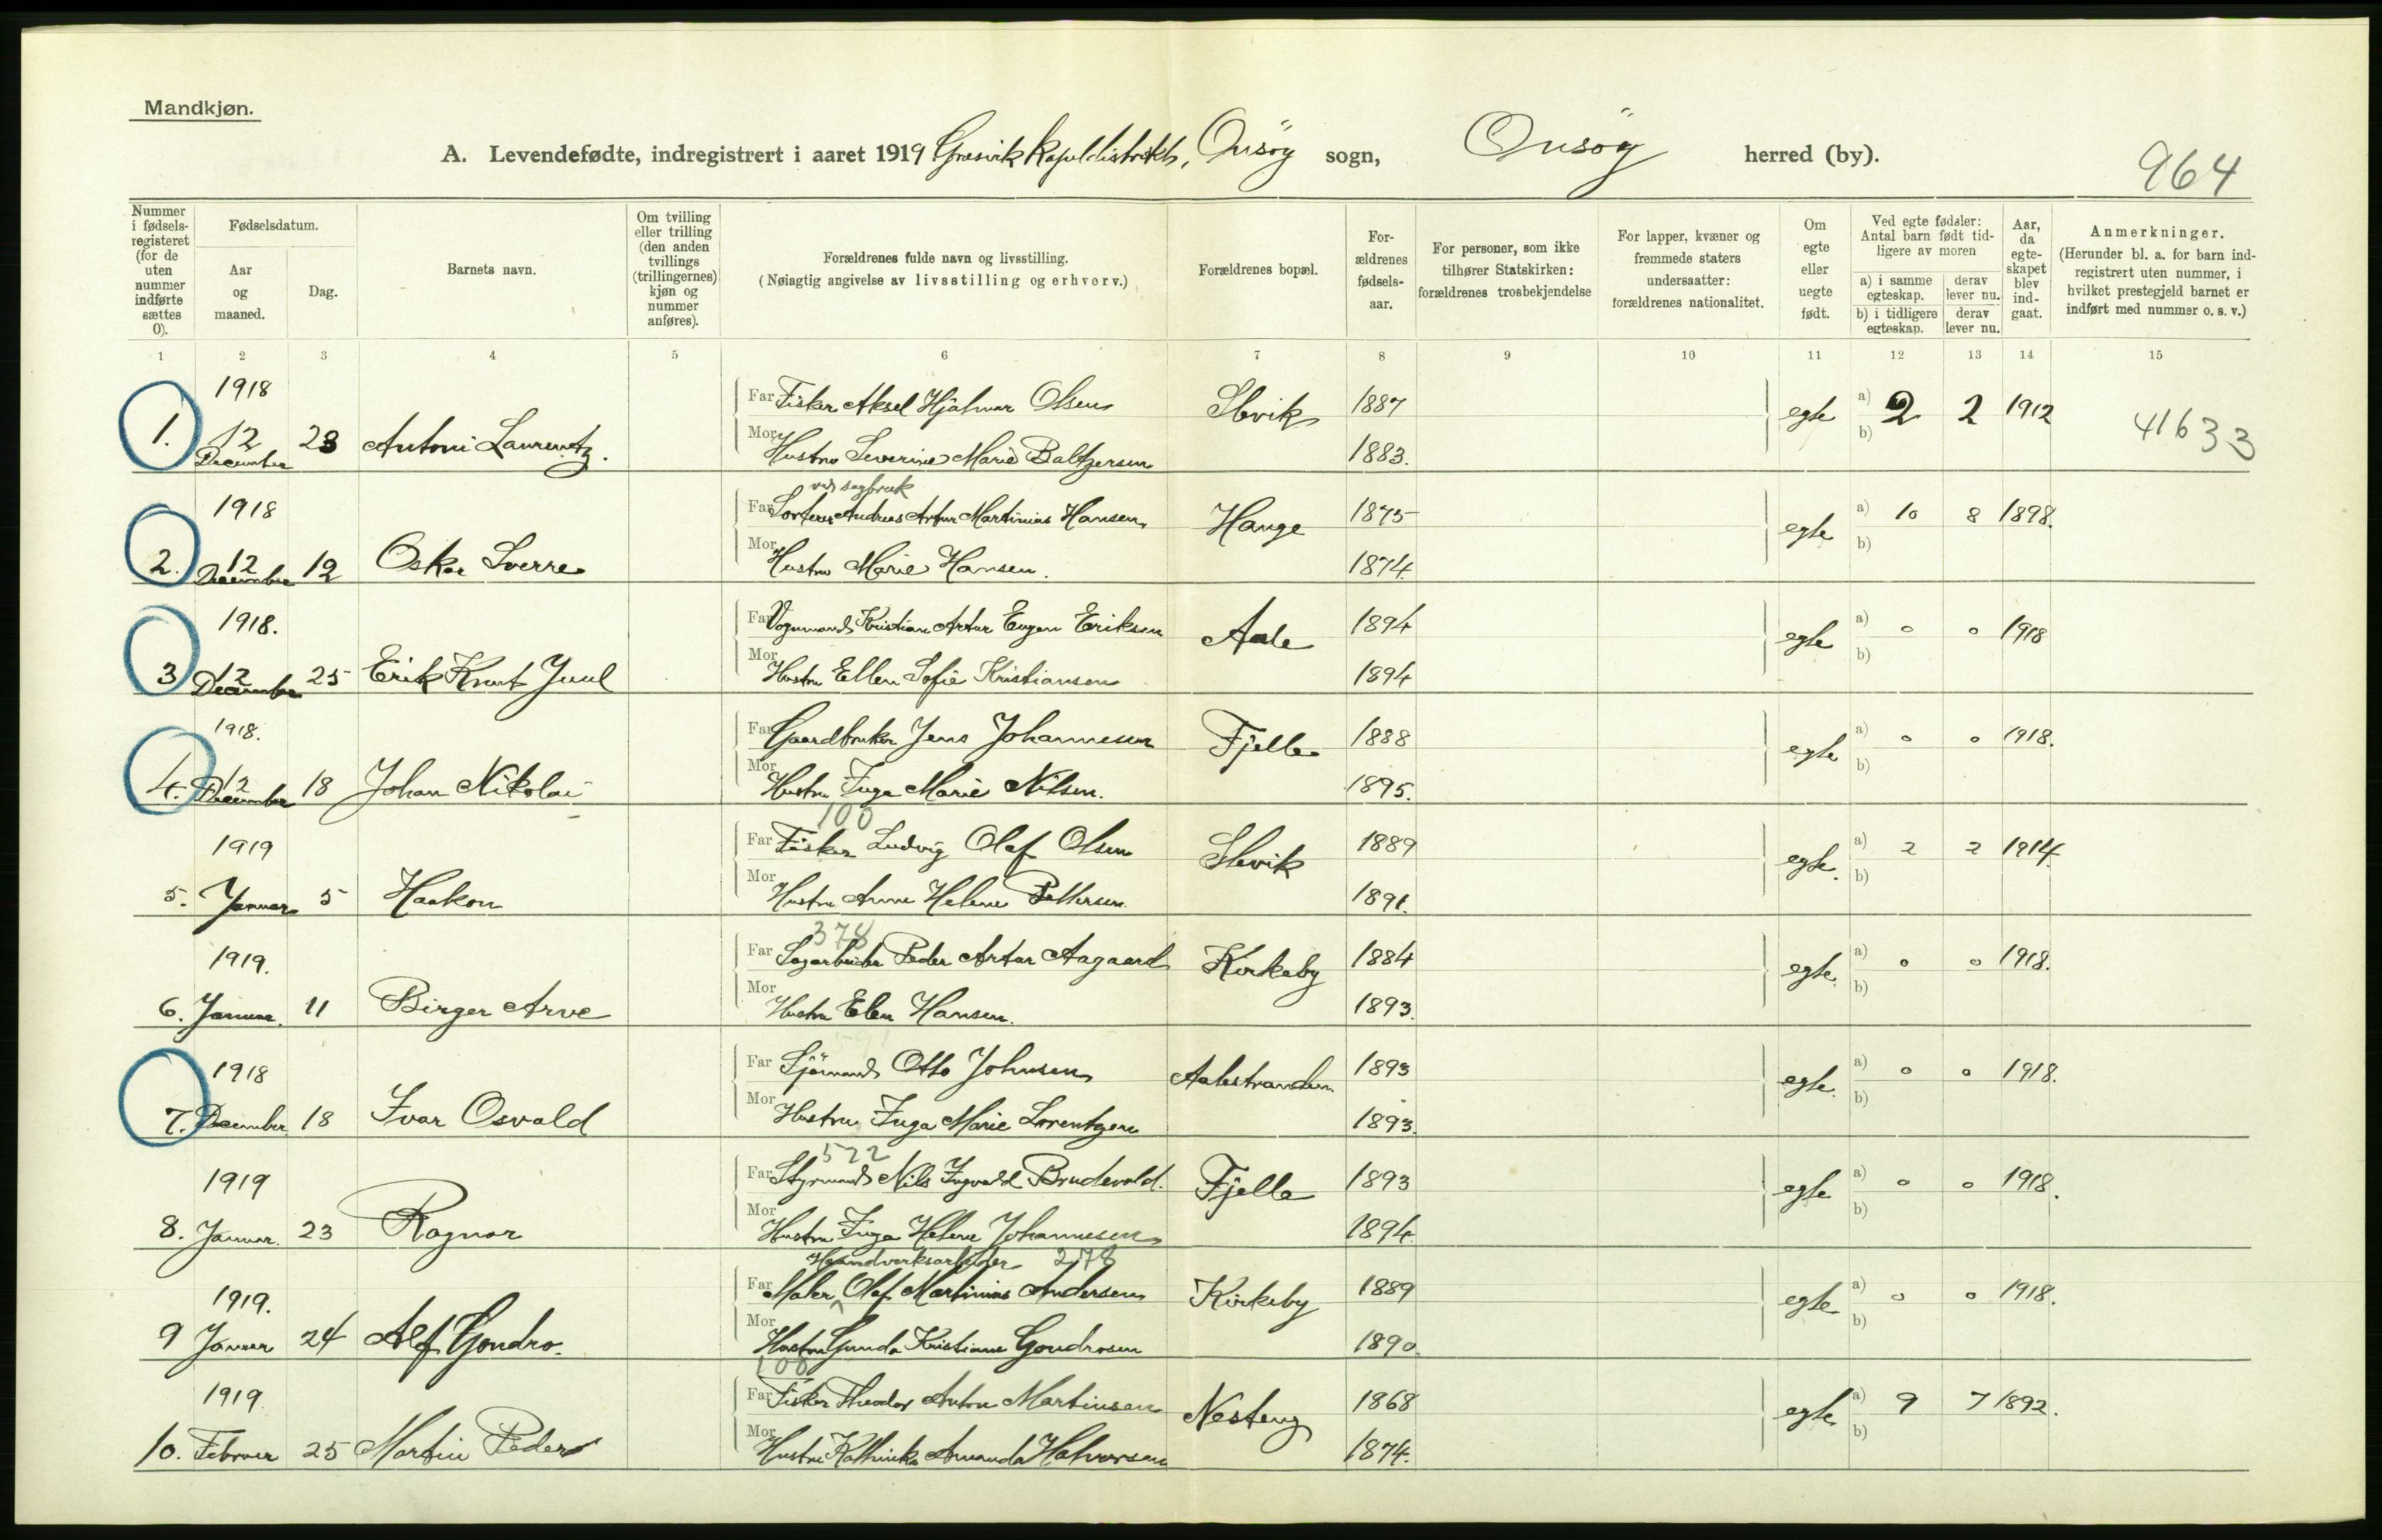 Mandkjøn.
A. Levendefødte, indregistrert i aaret 1919 Græsvik Kapeldistrikt, Onsöy sogn, Onsöy herred (by).
964
Nummer i fødselsregisteret (for de uten nummer indførte sættes 0).
Fødselsdatum.
Aar og maaned.
Dag.
Barnets navn.
Om tvilling eller trilling (den anden tvillings (trillingernes) kjøn og nummer anføres).
Forældrenes fulde navn og livsstilling.
(Nøiagtig angivelse av livsstilling og erhverv.)
Forældrenes bopæl.
Forældrenes fødselsaar.
For personer, som ikke tilhører Statskirken: forældrenes trosbekjendelse
For lapper, kvæner og fremmede staters undersaatter: forældrenes nationalitet.
Om egte eller uegte født.
Ved egte fødsler: Antal barn født tidligere av moren
a) i samme egteskap.
derav lever nu.
b) i tidligere egteskap.
derav lever nu.
Aar, da egteskapet blev indgaat.
Anmerkninger.
(Herunder bl. a. for barn indregistrert uten nummer, i hvilket prestegjeld barnet er indført med nummer o. s. v.)
1 2 3 4 5 6 7 8 9 10 11 12 13 14 15
1918
Far Fisker Aksel Hjalmar Olsen Slevik 1887 egte a) 2 2 1912 41633
1. 12 December 23 Antoni Laurentz.
Mor Hustru Severine Marie Baltzersen 1883. b)
ved sagbruk
1918 Far Sorterer Andreas Artur Martinius Hansen Hauge 1875 egte a) 10 8 1898.
2. 12 December 12 Oskar Sverre Mor Hustru Marie Hansen. 1874. b)
1918. Far Vognmand Kristian Artur Eugen Eriksen Aale 1894 egte a) 0 0 1918
3 12 December 25 Erik Knut Juul Mor Hustru Ellen Sofie Kristiansen 1894 b)
1918. Far Gaardbruker Jens Johannesen Fjelle 1888 egte a) 0 0 1918.
4. 12 December 18 Johan Nikolai Mor Hustru Inga Marie Nilsen. 1895. b)
100
1919 Far Fisker Ludvig Olaf Olsen Slevik 1889 egte. a) 2 2 1914.
5. Januar 5 Haakon Mor Hustru Anne Helene Pettersen 1891. b)
378
1919. Far Sagarbeider Peder Artur Aagaard Kirkeby 1884 egte. a) 0 0 1918.
6. Januar. 11 Birger Arve Mor Hustru Elen Hansen. 1893. b)
1918 Far Sjömand Otto Johnsen Aalestranden 1893 egte. a) 0 0 1918.
7. December. 18 Ivar Osvald Mor Hustru Inga Marie Lorentzen 1893. b)
522
1919 Far Styrmand Nils Ingvald Brudevold. Fjelle 1893 egte a) 0 0 1918.
8. Januar. 23 Ragnar Mor Hustru Inga Helene Johannesen 1894. b)
Haandverksarbeider 278
1919. Far Maler Olaf Martinius Andersen Kirkeby 1889 egte a) 0 0 1918.
9 Januar 24 Alf Gondro. Mor Hustru Gunda Kristiane Gondrosen 1890. b)
100
1919. Far Fisker Theodor Anton Martinsen Nesteng 1868 egte a) 9 7 1892.
10. Februar 25 Martin Peder Mor Hustru Kathinka Amanda Halvorsen 1874. b)